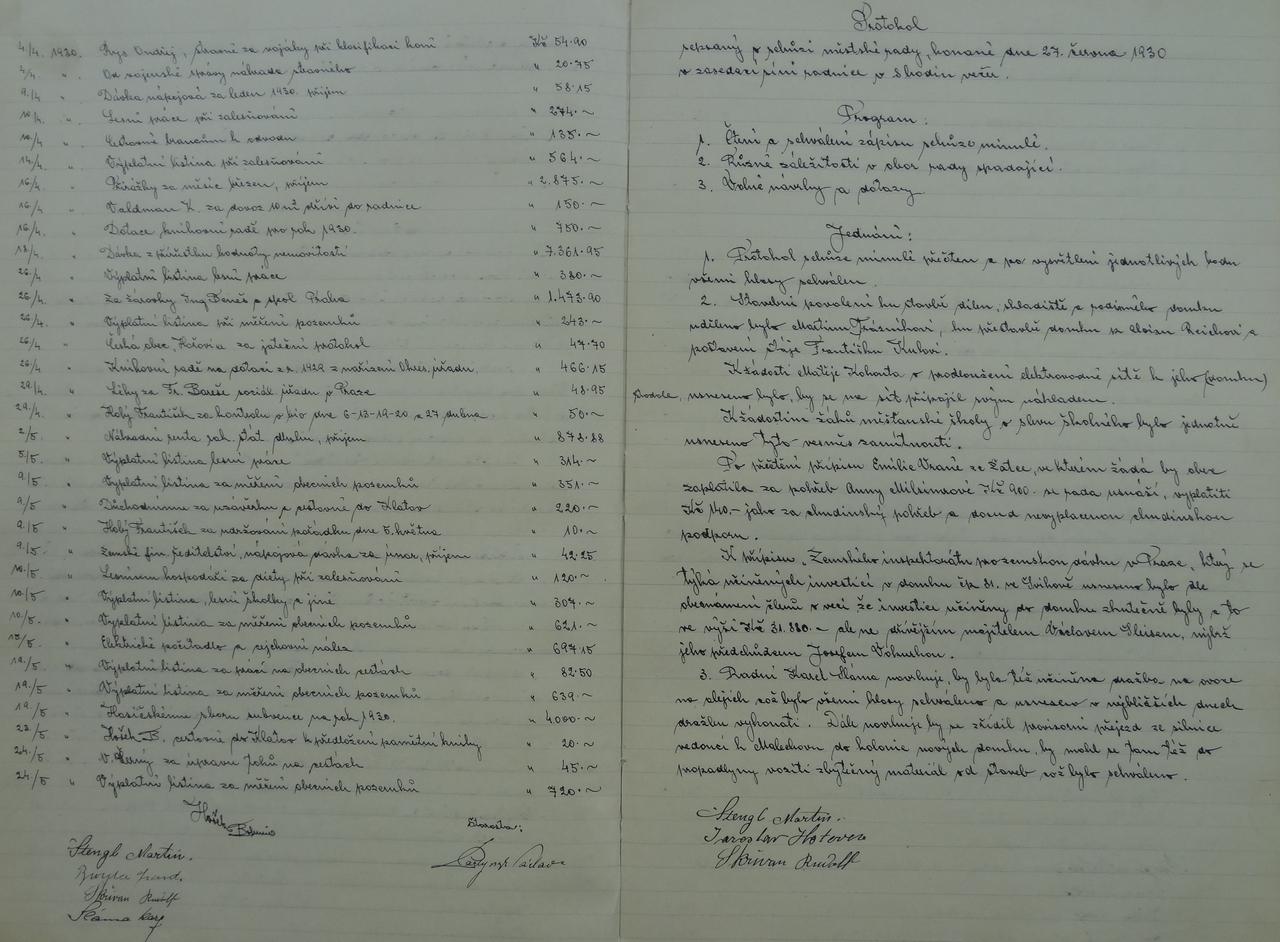 4/4. 1930. Rys Ondřej, stravné za vojáky při klasifikaci koní Kč 54·90
4/4. " Od vojenské správy náhrada stravného " 20·75
9./4 " Dávka nápojová za leden 1930. příjem " 58·15
10/4 " Lesní práce při zalesňování " 274·~
10/4. " Cestovné brancům k odvodu " 135·~
14/4 " Výplatní listina při zalesňování " 564·~
16/4 " Přirážky za měsíc březen, příjem " 2.875·~
16/4 " Valdman K. za dovoz 10 m dříví do radnice " 150·~
16/4 " Dotace knihovní radě pro rok 1930. " 750·~
18/4 " Dávka z přírůstku hodnoty nemovitostí " 7.361·95
26/4 " Výplatní listina lesní práce " 380·~
26/4 " Za žárovky Ing. Beneš a spol. Praha " 1.473·90
26/4. " Výplatní listina při měření pozemků " 243·~
26/4 " obec, za jateční protokol " 47·70
26/4 " Knihovní radě na dotaci z r. 1929 z nařízení Okres. úřadu " 466·15
29/4 " Léky za Fr. Bareše sociál. úřadu v Praze " 48·95
29/4. " Kobý František za kontrolu v bio dne 6-13-19-20 a 27 dubna " 50·~
2/5 " Náhradní renta rak. stát. dluhu, příjem " 878·88
5/5. " Výplatní listina lesní práce " 314·~
9/5 " Výplatní listina za měření obecních pozemků " 351·~
9/5 " Důchodnímu za uzávěrku a cestovné do Klatov " 220·~
9./5 " Kobý František za udržování pořádku dne 5. května " 10·~
9/5 " Zemské fin. ředitelství, nápojová dávka za únor, příjem " 42·25
10./5 " Lesnímu hospodáři za diety při zalesňování " 120·~
10/5 " Výplatní listina, lesní školky a jiné " 307·~
10/5 " Výplatní listina za měření obecních pozemků " 621·~
12/5 " Elektrické počitadlo a cejchovní nález " 697·15
19./5 " Výplatní listina za práci na obecních cestách " 82·50
19/5 " Výplatní listina za měření obecních pozemků " 639·~
19/5 " Hasičskému sboru subvence na rok 1930. " 4000·~
22/5 " Hošek B. cestovné do Klatov k předložení pamětní knihy " 20·~
24/5 " V. Černý za úpravu na cestách " 45·~
24/5 " Výplatní listina za měření obecních pozemků " 720·~
Hošek
Starosta:
Stengl Martin.
Skřivan Rudolf
Sláma Karel
Protokol
sepsaný o schůzi městské rady, konané dne 27. června 1930
v zasedací síni radnice v 8 hodin večer.
Program:
1. Čtení a schválení zápisu schůze minulé.
2. Různé záležitosti v obor rady spadající.
3. Volné návrhy a dotazy
Jednání:
1. Protokol schůze minulé přečten a po vysvětlení jednotlivých bodů
všemi hlasy schválen.
2. Stavební povolení ku stavbě dílen, skladiště a rodinného domku
uděleno bylo Martinu Trásníkovi, ku přestavbě domku p. Aloisu Reichovi a
postavení stáje Františku Kuhovi.
K žádosti Matěje Kohouta o prodloužení elektrovodné sítě k jeho (domku)
stodole, usneseno bylo, by se na síť připojil svým nákladem.
K žádostím žáků měšťanské školy o slevu školného bylo jednotně
usneseno tyto vesměs zamítnouti.
Po přečtení přípisu Emilie Vrané ze Žatce, ve kterém žádá by obec
zaplatila za pohřeb Anny Milsimrové Kč 900. se rada usnáší, vyplatiti
Kč 140,- jako za chudinský pohřeb a dosud nevyplacenou chudinskou
podporu.
K přípisu, Zemského inspektorátu pro zemskou dávku v Praze, který se
týká učiněných investicí v domku čp. 81. ve Švihově usneseno bylo dle
obeznámení členů s věcí že investice učiněny do domku skutečně byly a to
ve výši Kč 31.880.- ale ne dřívějším majitelem Václavem Gleisem, nýbrž
jeho předchůdcem Josefem Vokurkou.
3. Radní Karel Sláma navrhuje, by byla též učiněna dražba na ovoce
na alejích což bylo všemi hlasy schváleno a usneseno v nejbližších dnech
dražbu vykonati. Dále navrhuje by se zřídil provisorní přejezd ze silnice
vedoucí k Malechovu do kolonie nových domků, by mohl se tam též do
propadliny voziti zbytečný materiál od staveb což bylo schváleno.
Stengl Martin.
Jaroslav Hotovec
Skřivan Rudolf